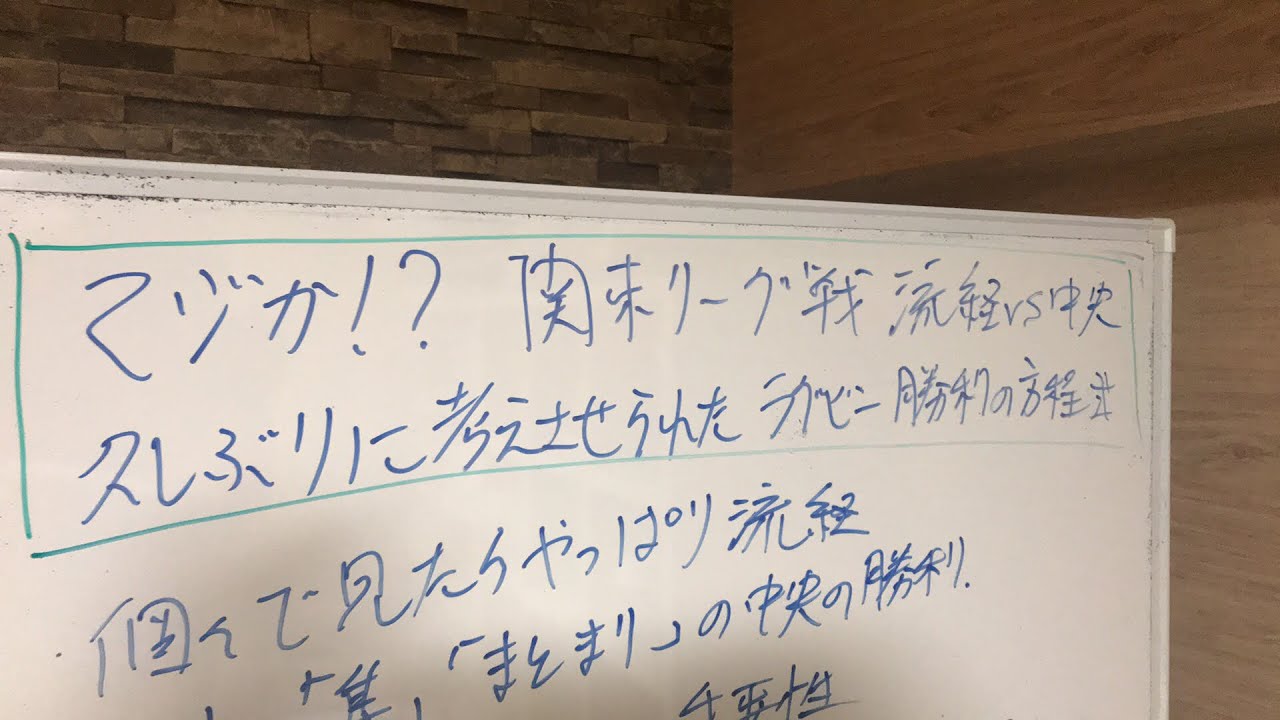 マジか!? 関東リーグ戦 流経vs中央
久しぶりに考えさせられた ラグビー 勝利の方程式
個々で見たらやっぱり流経
「集」「まとまり」の中央の勝利.
性